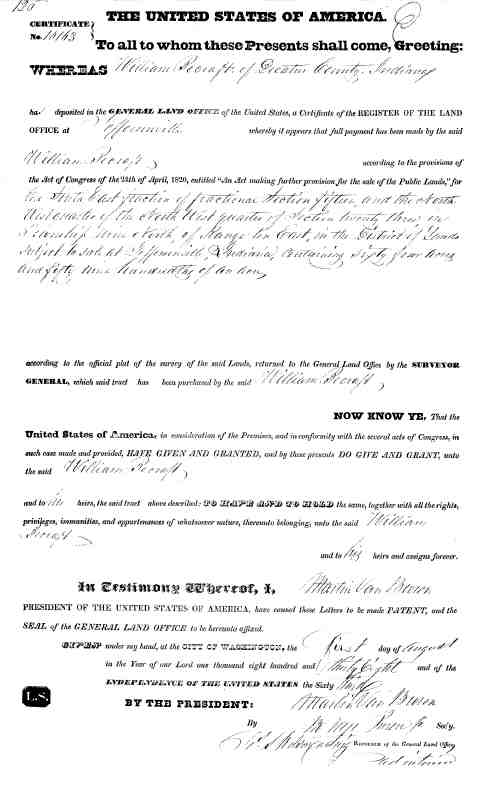 THE UNITED STATES OF AMERICA.
CERTIFICATE
No.
To all to whom these Presents shall come, Greeting:
WHEREAS William Pecraft of Decatur County, Indiana
ha deposited in the GENERAL LAND OFFICE of the United States, a Certificate of the REGISTER OF THE LAND
OFFICE at Jeffersonville whereby it appears that full payment has been made by the said
William Pecraft according to the provisions of
the Act of Congress of the 24th of April, 1820, entitled "An Act making further provision for the sale of the Public Lands," for
the East fraction of fractional Section fifteen, and the North
West quarter of the North West quarter of Section twenty three in
Township nine North, of Range ten East, in the District of Lands
subject to sale at Jeffersonville, Indiana, containing sixty four acres
and fifty nine hundredths of an acre
according to the official plat of the survey of the said Lands, returned to the General Land Office by the SURVEYOR
GENERAL, which said tract has been purchased by the said William Pecraft
NOW KNOW YE, That the
United States of America, in consideration of the Premises, and in conformity with the several acts of Congress, in
such case made and provided, HAVE GIVEN AND GRANTED, and by these presents DO GIVE AND GRANT, unto
the said William Pecraft
and to his heirs, the said tract above described: TO HAVE AND TO HOLD the same, together with all the rights,
privileges, immunities, and appurtenances of whatsoever nature, thereunto belonging, unto the said William
Pecraft
and to his heirs and assigns forever.
In Testimony Whereof, I, Martin Van Buren
PRESIDENT OF THE UNITED STATES OF AMERICA, have caused these Letters to be made PATENT, and the
SEAL of the GENERAL LAND OFFICE to be hereunto affixed.
GIVEN under my hand, at the CITY OF WASHINGTON, the first day of August
in the Year of our Lord one thousand eight hundred and thirty eight and of the
INDEPENDENCE OF THE UNITED STATES the Sixty third
L.S.
BY THE PRESIDENT: Martin Van Buren
By M Van Buren Jr Sec'y.
RECORDER of the General Land Office
ad interim